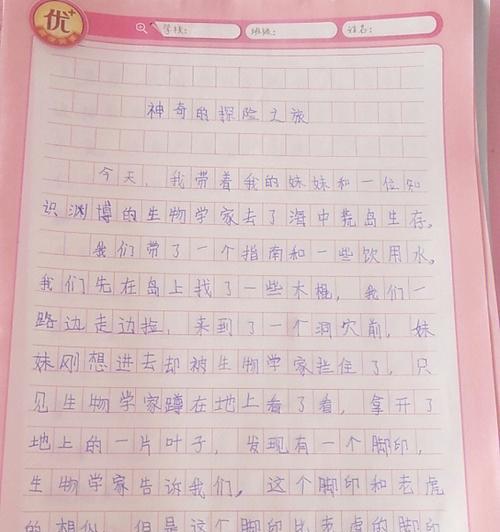 优+
学校: 班级: 姓名:
神奇的探险之旅
今天,我带着我的妹妹和一位知
识渊博的生物学家去了海中荒岛生存。
我们带了一个指南和一些饮用水。
我们先在岛上找了一些木棍,我们一
路边走边捡,来到了一个洞穴前,妹
妹刚想进去却被生物学家拦住了,只
见生物学家蹲在地上看了看,拿开了
地上的一片叶子,发现有一个脚印,
生物学家告诉我们,这个脚印和老虎
的相似,但是这个脚印比老虎的脚印